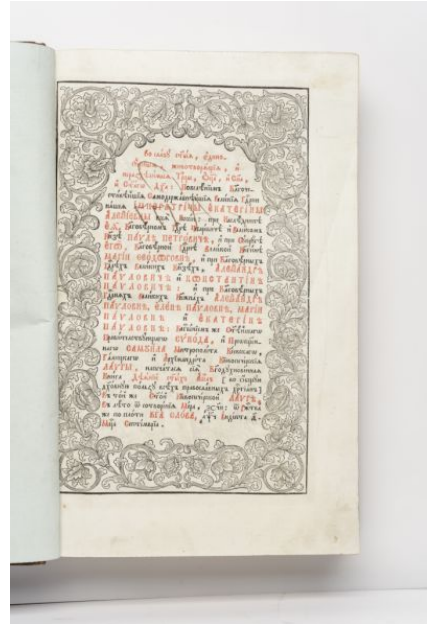 Во славу стыѧ, едино-
сꙋщныѧ, животворѧщіѧ, и
нераздѣлимыѧ Трцы, Оца, и Сна,
и Стагѡ Дха: Повелѣнїемъ Благоче-
стивѣйшїѧ Самодержавнѣйшїѧ Великїѧ Гдрни
нашеѧ ИМПЕРАТРИЦЫ ЕКАТЕРІНЫ
АЛЕѮІЕВНЫ всеѧ Рѡссіи: при Наслѣдникѣ
еѧ, Благовѣрномъ Гдрѣ Цесаревичѣ и Великомъ
Кнзѣ ПАѴЛѢ ПЕТРОВИЧѢ, и при Сꙋпрꙋгѣ
егѡ, Благовѣрной Гдрнѣ Великой Кнгинѣ
МАРІИ ѲЕОДѠРОВНѢ, и при Благовѣрныхъ
Гдрехъ Великихъ Кнзехъ, АЛЕѮАНДРѢ
ПАѴЛОВИЧѢ и КѠНСТАНТІНѢ
ПАѴЛОВИЧѢ: и при Благовѣрныхъ
Гднѧхъ Великихъ Кнжнахъ АЛЕѮАНДРѢ
ПАѴЛОВНѢ, ЕЛЕНѢ ПАѴЛОВНѢ, МАРІИ
ПАѴЛОВНѢ и ЕКАТЕРІНѢ
ПАѴЛОВНѢ: Блгословенїемъ же Стѣйшагѡ
Правительствꙋющагѡ СѴНОДА, и Преѡсщен-
нагѡ САМꙊИЛА Митрополита Кіевскагѡ,
Галицкагѡ и Архімандрита Кіевопечерскїѧ
ЛАѴРЫ, напечатасѧ сіѧ Бгодхновеннаѧ
Книга
въ той же Стой Кіевопечерской ЛАѴРѢ,
Въ лѣто ѿ сотворенїѧ Міра, ѿ ржтва
же по плоти БГА СЛОВА, Індікта
Мца Септемврїа.